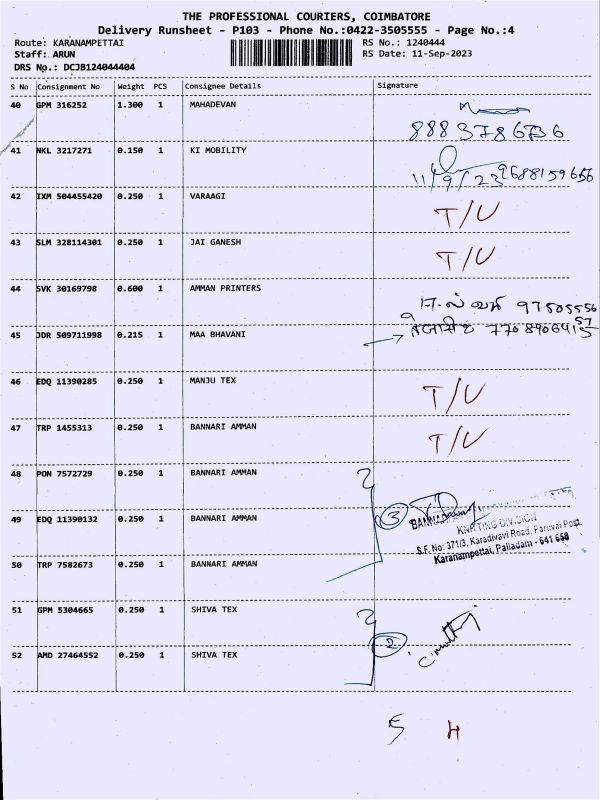 THE PROFESSIONAL COURIERS, COIMBATORE
Delivery Runsheet - P103 - Phone No.:0422-3505555 - Page No.:4
Route: KARANAMPETTAI RS No.: 1240444
Staff: ARUN RS Date: 11-Sep-2023
DRS No.: DCJB124044404
S No Consignment No Weight PCS Consignee Details Signature
40 GPM 316252 1.300 1 MAHADEVAN
8883786736
41 NKL 3217271 0.150 1 KI MOBILITY
11/9/23 9688159656
42 IXM 504455420 0.250 1 VARAAGI T/U
43 SLM 328114301 0.250 1 JAI GANESH T/U
44 SVK 30169798 0.600 1 AMMAN PRINTERS
45 JDR 509711998 0.215 1 MAA BHAVANI
46 EDQ 11390285 0.250 1 MANJU TEX T/U
47 TRP 1455313 0.250 1 BANNARI AMMAN T/U
48 PON 7572729 0.250 1 BANNARI AMMAN
49 EDQ 11390132 0.250 1 BANNARI AMMAN 3
KNITTING DIVISION
S.F. No: 371/3, Karadivavi Road, Paruvai Post,
Karanampettai, Palladam - 641 658
50 TRP 7582673 0.250 1 BANNARI AMMAN
51 GPM 5304665 0.250 1 SHIVA TEX
2
52 AMD 27464552 0.250 1 SHIVA TEX
5 4